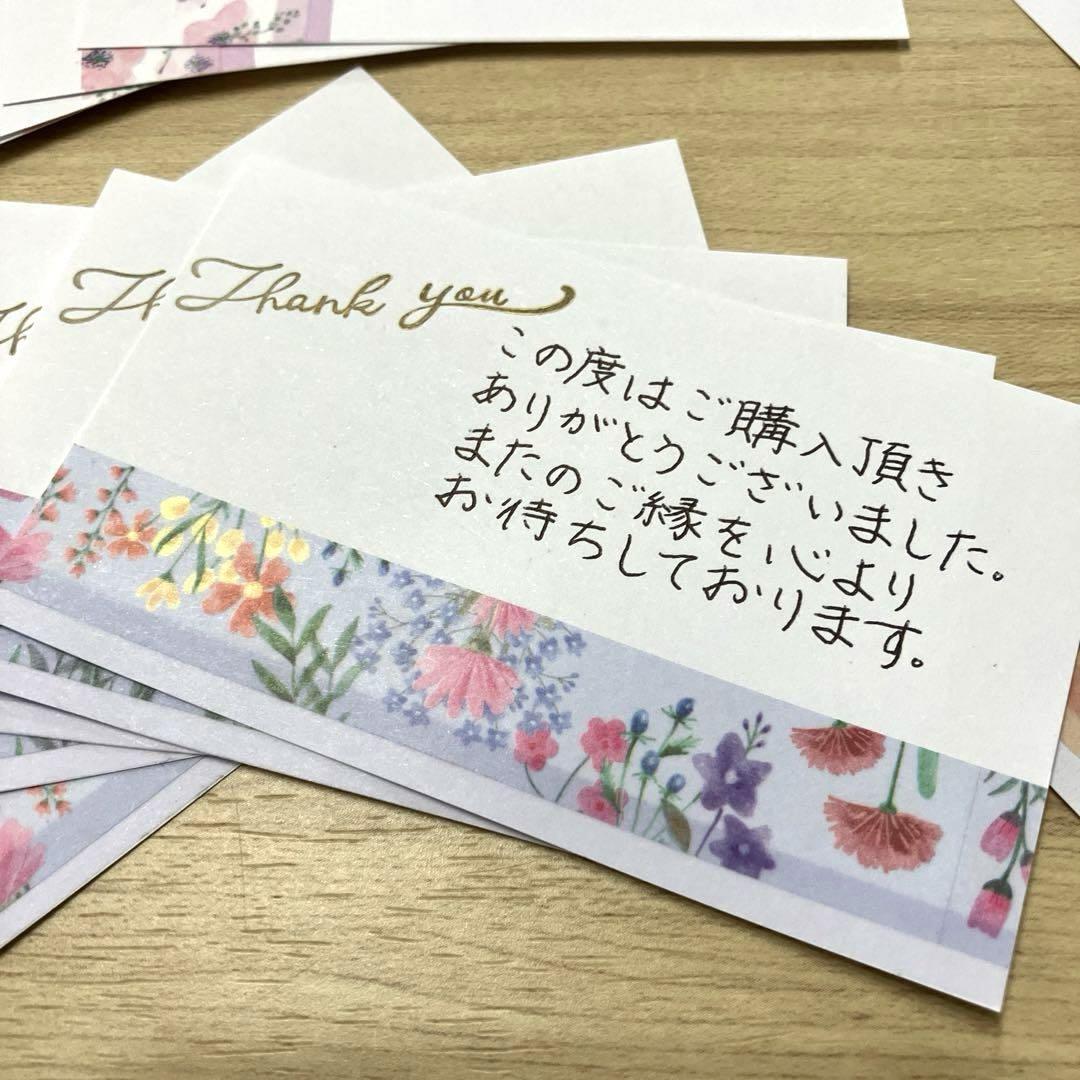 Thank you
この度はご購入頂き
ありがとうございました。
またのご縁を心より
お待ちしております。
Th
Th